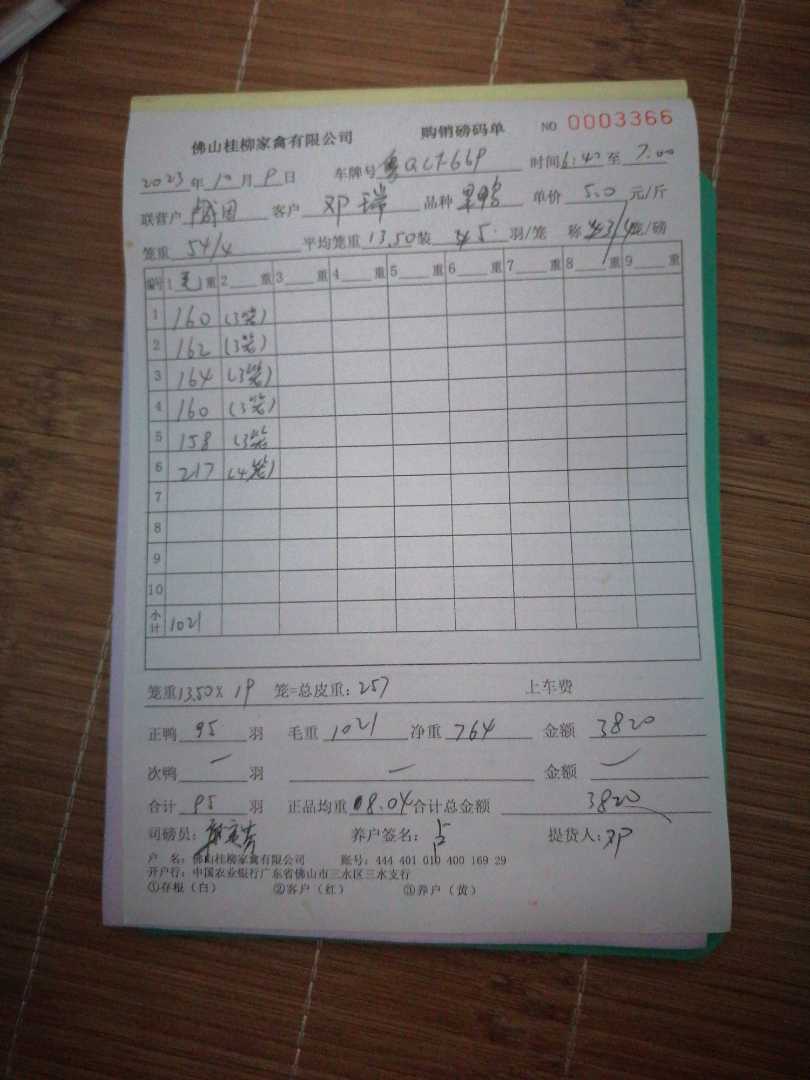 佛山桂柳家禽有限公司 购销磅码单 NO 0003366
2023年10月9日 车牌号 粤QLT669 时间6:40至7.00
联营户 客户 邓瑞 品种 单价 5.0 元/斤
笼重 54/4 平均笼重13.50装 5 羽/笼 称 3/4笼/磅
编号 1 毛 重 2 重 3 重 4 重 5 重 6 重 7 重 8 重 9 重
1 160 (3笼)
2 162 (3笼)
3 164 (3笼)
4 160 (3笼)
5 158 (3笼
6 217 (4笼)
7
8
9
10
小计 1021
笼重13.50X 19 笼=总皮重:257 上车费
正鸭 95 羽 毛重 1021 净重 764 金额 3820
次鸭 一 羽 一 金额 一
合计 95 羽 正品均重 8.04 合计总金额 3820
司磅员: 养户签名: 提货人:邓
户 名:佛山桂柳家禽有限公司 账号:444 401 010 400 169 29
开户行:中国农业银行广东省佛山市三水区三水支行
①存根(白) ②客户(红) ③养户(黄)